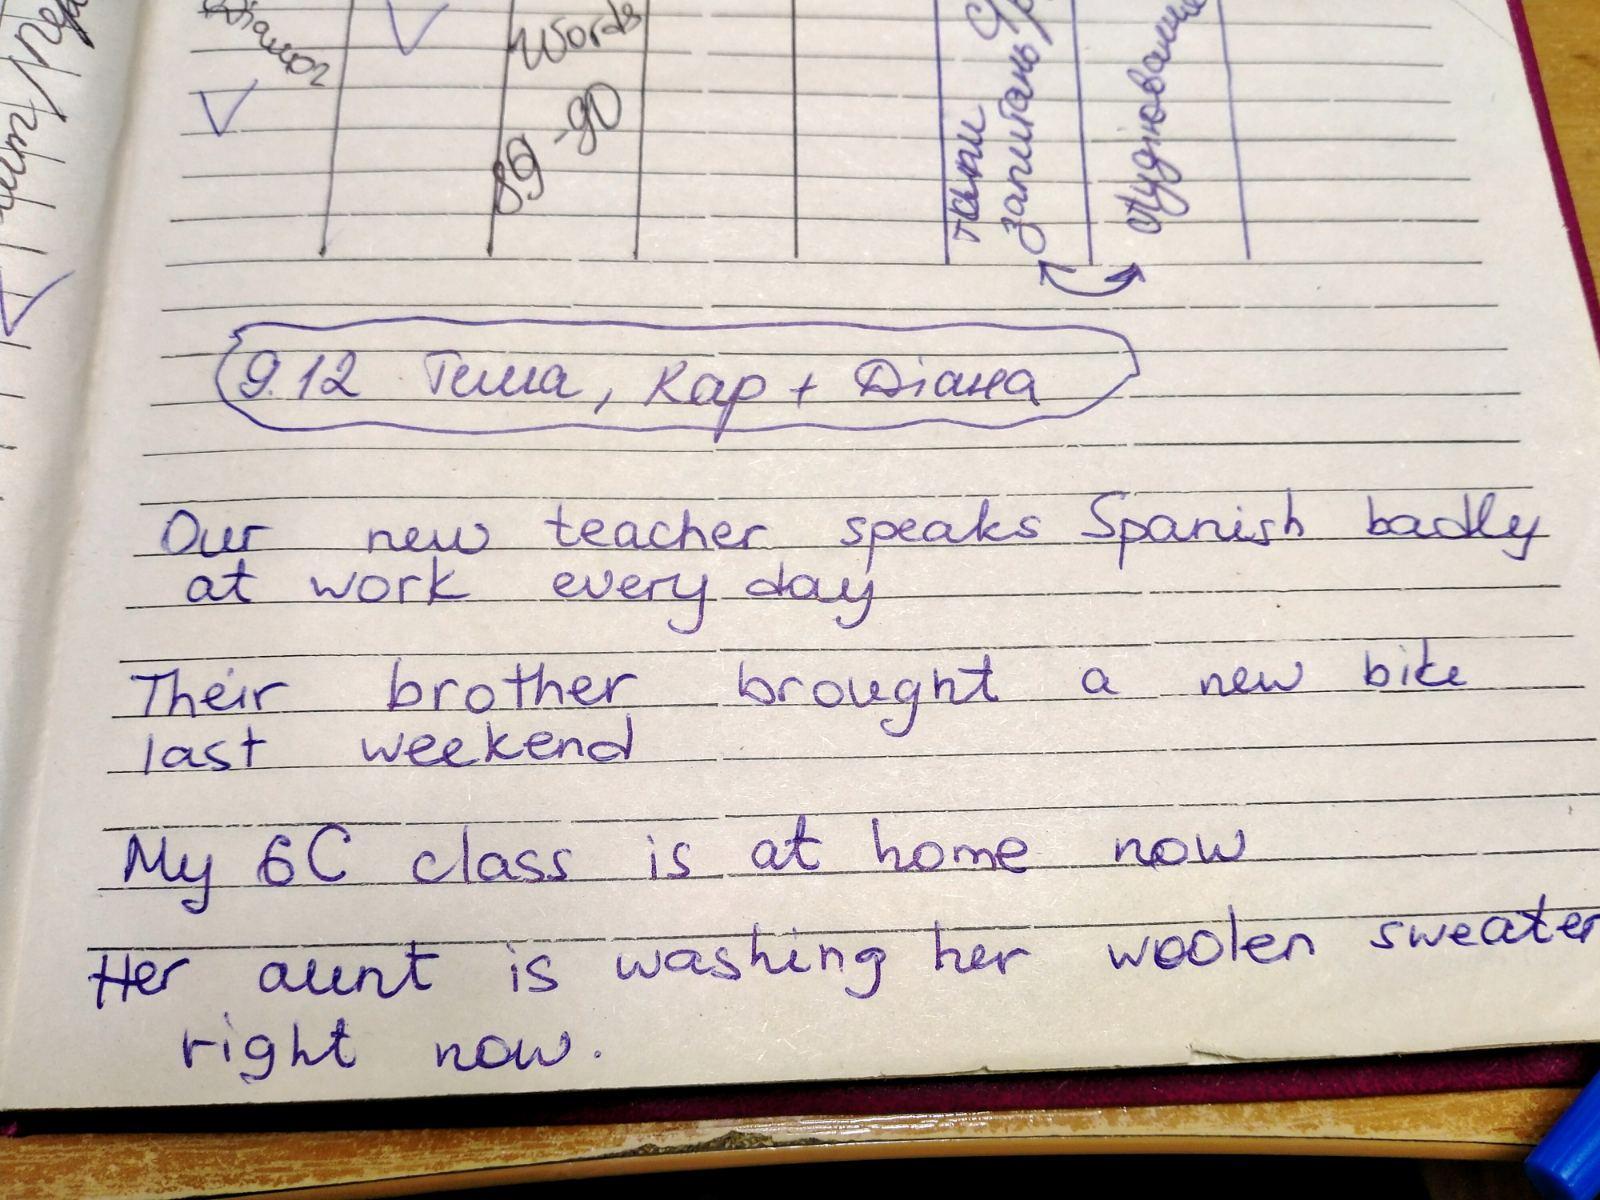 Діалог
Words
89-90
запитань
Аудіювання
9.12 Тема, Кар + Діана
Our new teacher speaks Spanish badly
at work every day
Their brother brought a new bike
last weekend
My 6C class is at home now
Her aunt is washing her woolen sweater
right now.